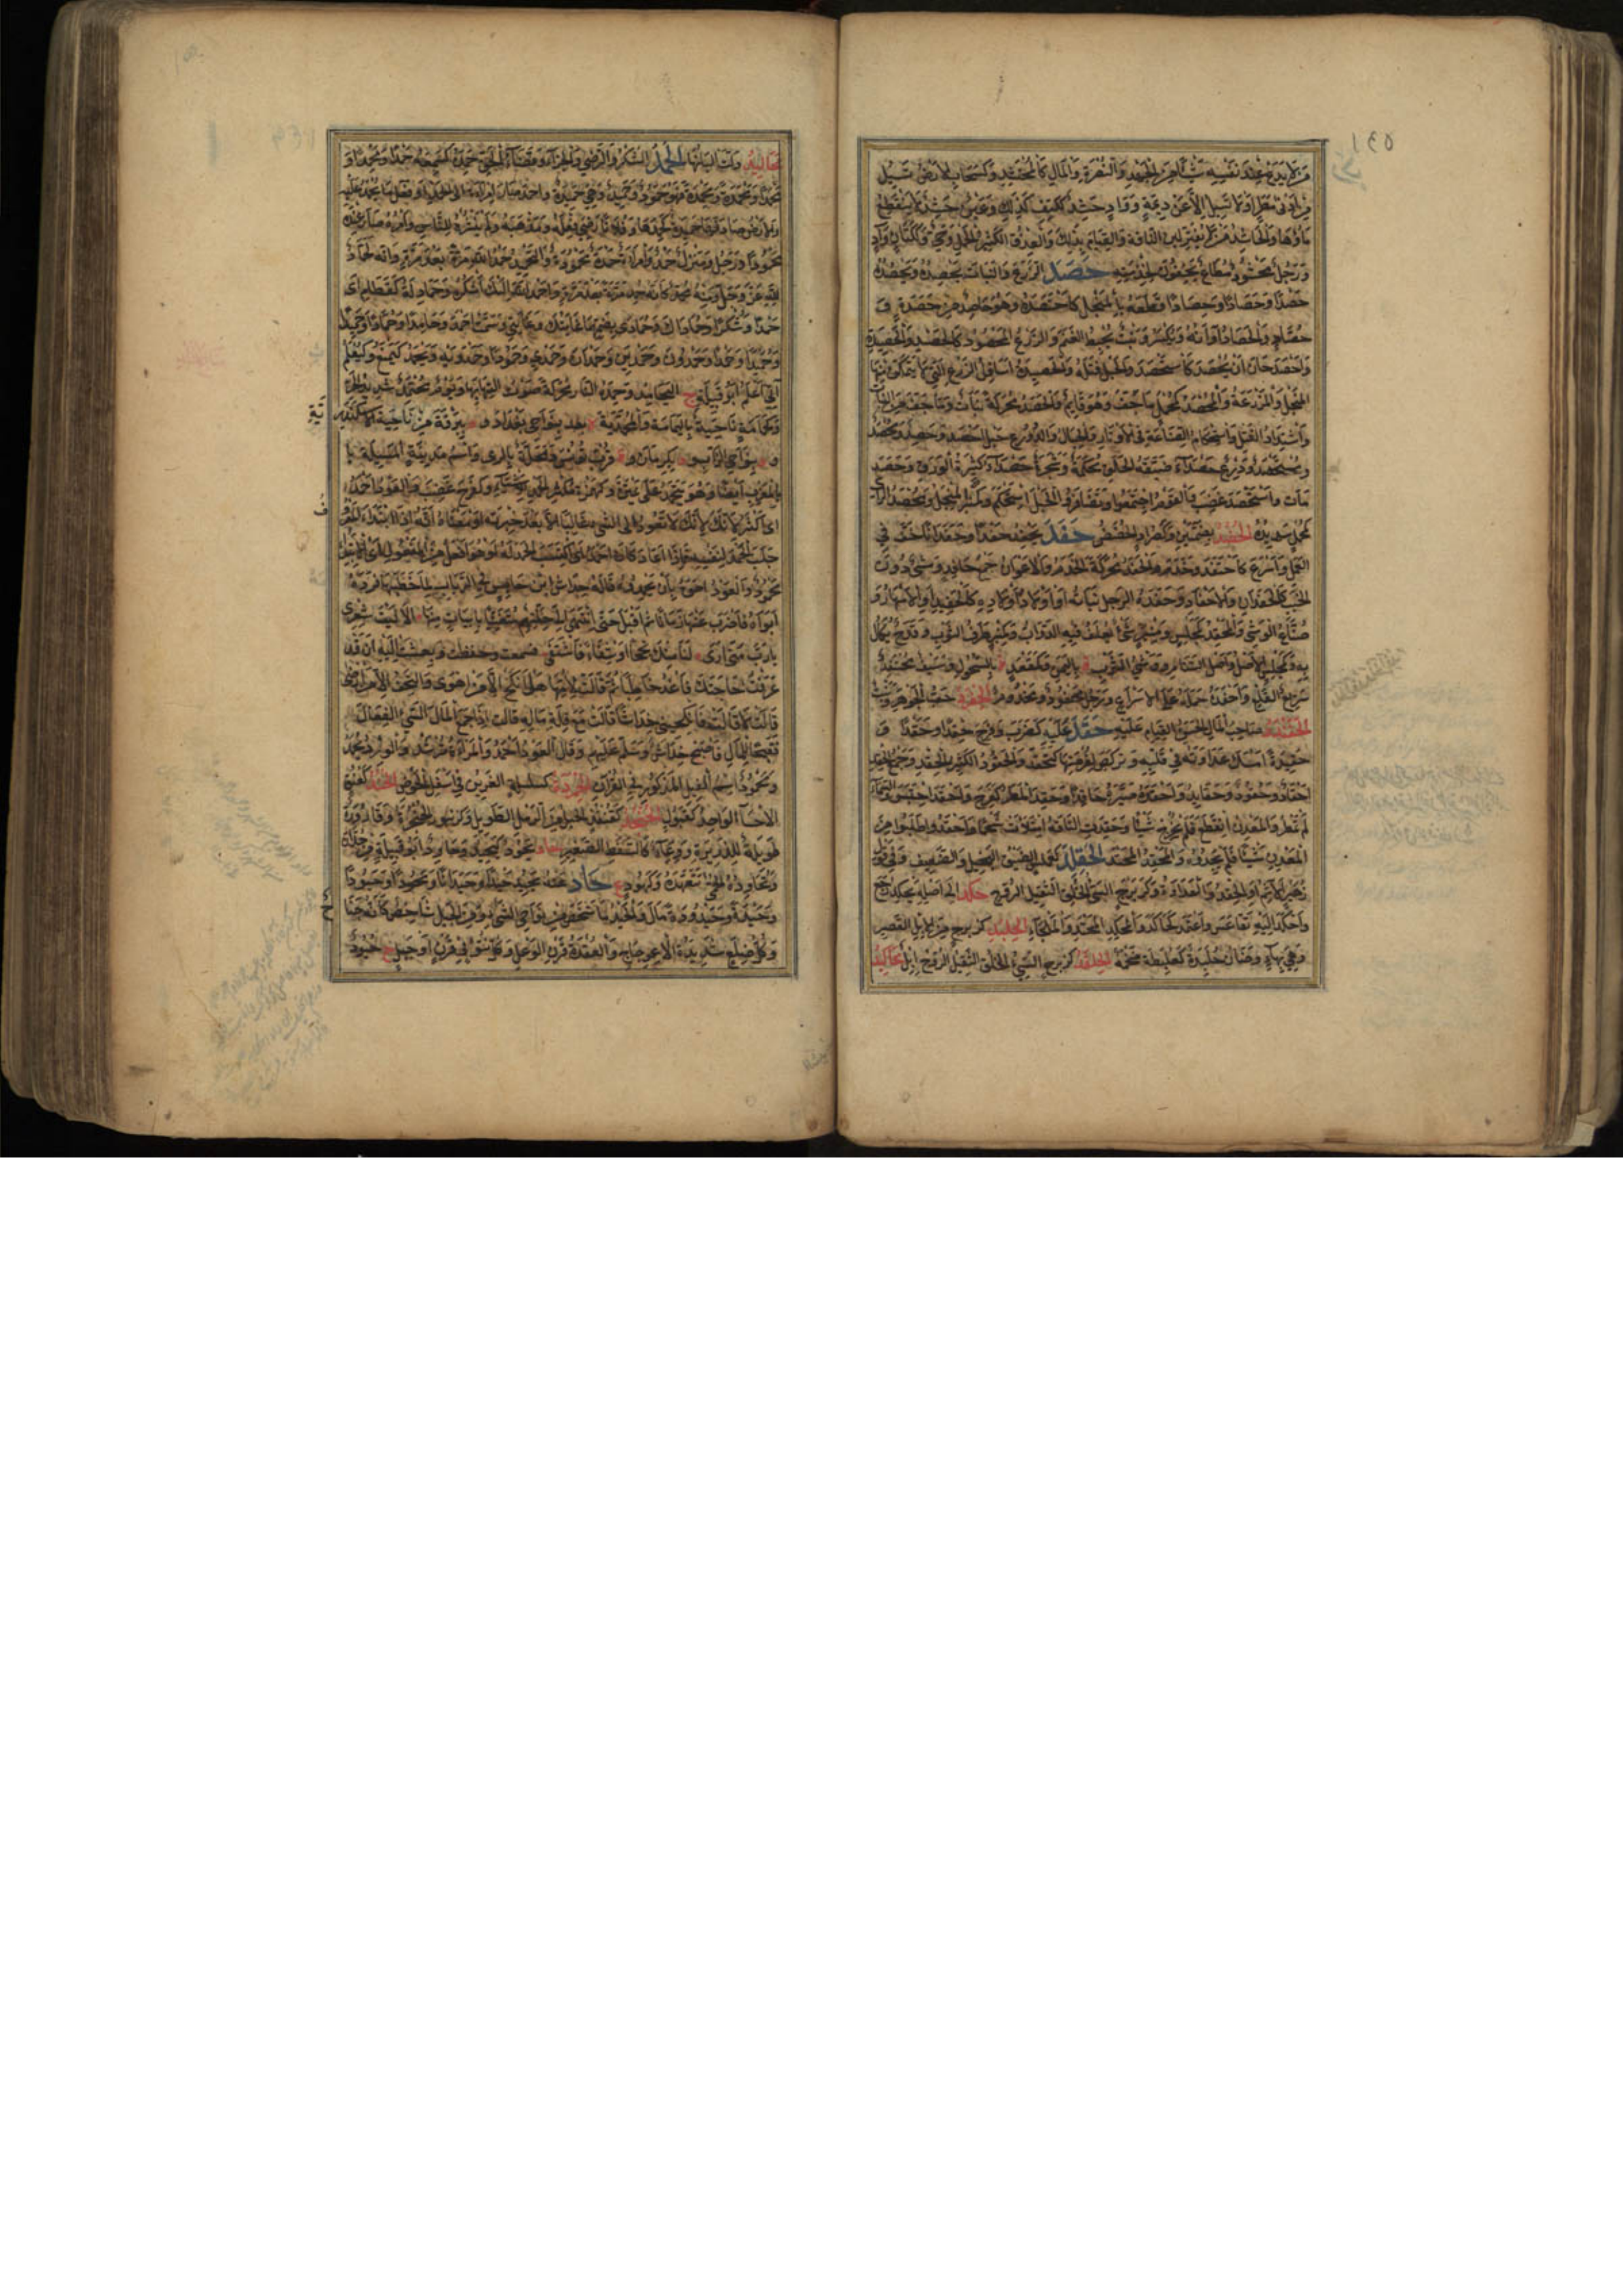 ١٤٥
مَنْ لا يَدَعُ عِنْدَ نَفْسِهِ شَيْئًا مِنَ الجَهْدِ وَالنُّصْرَةِ وَالمَالِ كَالمُحْتَشِدِ وَكَسَحَابٍ الأَرْضُ تَسِيلُ
مِنْ أَدْنَى مَطَرٍ أَوْ لَا تَسِيلُ إِلَّا عَنْ دِيمَةٍ وَوَادٍ حَشِدٌ كَكَتِفٍ كَذَلِكَ وَعَيْنٌ حَشِدٌ لَا يَنْقَطِعُ
مَاؤُهَا وَالحَاشِدُ مَنْ لَا يُفَتِّرُ حَلْبَ النَّاقَةِ وَالقِيَامَ بِذَلِكَ وَالعِذْقُ الكَثِيرُ الحَمْلِ وَحَيٌّ وَكَكَتَّانٍ وَادٍ
وَرَجُلٌ مَحْشُودٌ مُطَاعٌ يَخِفُّونَ لِخِدْمَتِهِ حَصَدَ الزَّرْعَ وَالنَّبَاتَ يَحْصِدُهُ وَيَحْصُدُهُ
حَصْدًا وَحَصَادًا وَحِصَادًا قَطَعَهُ بِالمِنْجَلِ كَاحْتَصَدَهُ وَهُوَ حَاصِدٌ مِنْ حَصَدَةٍ وَ
حُصَّادٍ وَالحَصَادُ أَوَانُهُ وَيُكْسَرُ وَنَبْتٌ يُحْبِطُ الغَنَمَ وَالزَّرْعُ المَحْصُودُ كَالحَصَدِ وَالحَصِيدِ
وَأَحْصَدَ حَانَ أَنْ يُحْصَدَ كَاسْتَحْصَدَ وَالحَبْلَ فَتَلَهُ وَالحَصِيدَةُ أَسَافِلُ الزَّرْعِ الَّتِي لَا يَتَمَكَّنُ مِنْهَا
المِنْجَلُ وَالمَزْرَعَةُ وَالمُحْصَدُ كَمُجْمَلٍ مَا جَفَّ وَهُوَ قَائِمٌ وَالحَصَدُ مُحَرَّكَةً نَبَاتٌ وَمَا جَفَّ مِنَ النَّبَاتِ
وَاشْتِدَادُ الفَتْلِ وَاسْتِحْكَامُ الصِّنَاعَةِ فِي الأَوْتَارِ وَالحِبَالِ وَالدُّرُوعِ حَبْلٌ أَحْصَدُ وَحَصِدٌ وَمُحْصَدٌ
وَمُسْتَحْصِدٌ وَدِرْعٌ حَصْدَاءُ ضَيِّقَةُ الحَلَقِ مُحْكَمَةٌ وَشَجَرَةٌ حَصْدَاءُ كَثِيرَةُ الوَرَقِ وَحَصَدَ
مَاتَ وَاسْتَحْصَدَ غَضِبَ وَالقَوْمُ اجْتَمَعُوا وَتَضَافَرُوا وَالحَبْلُ اسْتَحْكَمَ وَكَمِنْبَرٍ المِنْجَلُ وَمُحْصَدُ الرَّأْيِ
كَمُجْمَلٍ سَدِيدُهُ الحُضُدُ بِضَمَّتَيْنِ وَكَصُرَدٍ الحُضُضُ حَفَدَ يَحْفِدُ حَفْدًا وَحَفَدَانًا خَفَّ فِي
العَمَلِ وَأَسْرَعَ كَاحْتَفَدَ وَخَدَمَ وَالحَفَدُ مُحَرَّكَةً الخَدَمُ وَالأَعْوَانُ جَمْعُ حَافِدٍ وَمَشْيٌ دُونَ
الخَبَبِ كَالحَفَدَانِ وَالإِحْفَادِ وَحَفَدَةُ الرَّجُلِ بَنَاتُهُ أَوْ أَوْلَادُ أَوْلَادِهِ كَالحَفِيدِ أَوِ الأَصْهَارُ وَ
صُنَّاعُ الوَشْيِ وَالمَحْفِدُ كَمَجْلِسٍ وَمِنْبَرٍ شَيْءٌ يُعْلَفُ فِيهِ الدَّوَابُّ وَكَمِنْبَرٍ طَرَفُ الثَّوْبِ وَقَدَحٌ يُكَالُ
بِهِ وَكَمَجْلِسٍ الأَصْلُ وَأَصْلُ السَّنَامِ وَوَشْيُ الثَّوْبِ ة بِاليَمَنِ وَكَمَقْعَدٍ ة بِالسَّحُولِ وَسَيْفٌ مُحْتَفِدٌ
سَرِيعُ القَطْعِ وَأَحْفَدَهُ حَمَلَهُ عَلَى الإِسْرَاعِ وَرَجُلٌ مَحْفُودٌ مَخْدُومٌ الحِفْرِدُ حَبُّ الجَوْهَرِ وَنَبْتٌ
الحَفَنْدَدُ صَاحِبُ المَالِ الحَسَنُ القِيَامِ عَلَيْهِ حَقَدَ عَلَيْهِ كَضَرَبَ وَفَرِحَ حِقْدًا وَحَقْدًا وَ
حَقِيدَةً أَمْسَكَ عَدَاوَتَهُ فِي قَلْبِهِ وَتَرَبَّصَ لِفُرْصَتِهَا كَتَحَقَّدَ وَالحَقُودُ الكَثِيرُ الحِقْدِ وَجَمْعُ الحِقْدِ
أَحْقَادٌ وَحُقُودٌ وَحَقَائِدُ وَأَحْقَدَهُ صَيَّرَهُ حَاقِدًا وَحَقِدَ المَطَرُ كَفَرِحَ وَاحْتَقَدَ احْتَبَسَ وَالسَّمَاءُ
لَمْ تُمْطِرْ وَالمَعْدِنُ انْقَطَعَ فَلَمْ يُخْرِجْ شَيْئًا وَحَقِدَتِ النَّاقَةُ امْتَلَأَتْ شَحْمًا وَأَحْقَدُوا طَلَبُوا مِنَ
المَعْدِنِ شَيْئًا فَلَمْ يَجِدُوهُ وَالمَحْقِدُ المَحْتِدُ الحَقَلَّدُ كَعَمَلَّسٍ الضَّيِّقُ البَخِيلُ وَالضَّعِيفُ وَفِي قَوْلِ
زُهَيْرٍ الآثِمُ أَوِ الحِقْدُ وَالعَدَاوَةُ وَكَزِبْرِجٍ السَّيِّئُ الخُلُقِ الثَّقِيلُ الرُّوحِ حَكَدَ إِلَى أَصْلِهِ يَحْكِدُ رَجَعَ
وَأَحْكَدَ إِلَيْهِ تَقَاعَسَ وَاعْتَمَدَ كَحَاكَدَ وَالمَحْكِدُ المَحْتِدُ وَالمَلْجَأُ الحِلْبِدُ كَزِبْرِجٍ مِنَ الإِبِلِ القَصِيرُ
وَهِيَ بِهَاءٍ وَضَأْنٌ حُلَبِدَةٌ كَعُلَبِطَةٍ ضَخْمَةٌ الحِلْقِدُ كَزِبْرِجٍ السَّيِّئُ الخُلُقِ الثَّقِيلُ الرُّوحِ إِبِلٌ مَحَالِيدُ
مَحَالِيدُ وَلَّتْ أَلْبَانُهَا الحَمْدُ الشُّكْرُ وَالرِّضَى وَالجَزَاءُ وَقَضَاءُ الحَقِّ حَمِدَهُ كَسَمِعَهُ حَمْدًا وَمَحْمِدًا وَ
مَحْمَدًا وَمَحْمِدَةً وَمَحْمَدَةً فَهُوَ حَمُودٌ وَحَمِيدٌ وَهِيَ حَمِيدَةٌ وَأَحْمَدَ صَارَ أَمْرُهُ إِلَى الحَمْدِ أَوْ فَعَلَ مَا يُحْمَدُ عَلَيْهِ
وَالأَرْضَ صَادَفَهَا حَمِيدَةً كَحَمِدَهَا وَفُلَانًا رَضِيَ فِعْلَهُ وَمَذْهَبَهُ وَلَمْ يَنْشُرْهُ لِلنَّاسِ وَأَمْرَهُ صَارَ عِنْدَهُ
مَحْمُودًا وَرَجُلٌ وَمَنْزِلٌ حَمْدٌ وَامْرَأَةٌ حَمْدَةٌ مَحْمُودَةٌ وَالتَّحْمِيدُ حَمْدُ اللهِ مَرَّةً بَعْدَ مَرَّةٍ وَإِنَّهُ لَحَمَّادٌ
لِلَّهِ عَزَّ وَجَلَّ وَمِنْهُ مُحَمَّدٌ كَأَنَّهُ حُمِدَ مَرَّةً بَعْدَ مَرَّةٍ وَأَحْمَدُ إِلَيْكَ اللهَ أَشْكُرُهُ وَحَمَادِ لَهُ كَقَطَامِ أَيْ
حَمْدًا وَشُكْرًا وَحُمَادَاكَ وَحُمَادَيَّ بِضَمِّهِمَا غَايَتُكَ وَغَايَتِي وَسَمَّتْ أَحْمَدَ وَحَامِدًا وَحَمَّادًا وَحَمِيدًا
وَحُمَيْدًا وَحَمْدًا وَحَمْدُونَ وَحَمْدِينَ وَحَمْدَانَ وَحَمْدَى وَحَمُّودًا وَحَمْدَوَيْهِ وَيَحْمَدُ كَيَمْنَعُ وَكَيُعْلِمُ
آتِي أَعْلَمَ أَبُو قَبِيلَةٍ ج اليَحَامِدُ وَحَمَدَةُ النَّارِ مُحَرَّكَةً صَوْتُ الْتِهَابِهَا وَيَوْمٌ مُحْتَمِدٌ شَدِيدُ الحَرِّ
وَكَحَمَامَةٍ نَاحِيَةٌ بِاليَمَامَةِ وَالمُحَمَّدِيَّةُ ة بِنَوَاحِي بَغْدَادَ و د بِبَرْقَةَ مِنْ نَاحِيَةِ الإِسْكَنْدَرِيَّةِ
و د بِنَوَاحِي الزَّابِ و د بِكِرْمَانَ و ة قُرْبَ تُونُسَ وَمَحَلَّةٌ بِالرَّيِّ وَاسْمُ مَدِينَةِ المَسِيلَةِ بِا
لْمَغْرِبِ أَيْضًا وَهُوَ يَتَحَمَّدُ عَلَيَّ يَمْتَنُّ وَكَهُمَزَةٍ مُكْثِرُ الحَمْدِ لِلأَشْيَاءِ وَكَفَرِحَ غَضِبَ وَالعَوْدُ أَحْمَدُ
أَيْ أَكْثَرُ حَمْدًا لِأَنَّكَ لَا تَعُودُ إِلَى الشَّيْءِ غَالِبًا إِلَّا بَعْدَ خِبْرَتِهِ أَوْ مَعْنَاهُ أَنَّهُ إِذَا ابْتَدَأَ المَعْرُوفَ
جَلَبَ الحَمْدَ لِنَفْسِهِ فَإِذَا أَعَادَ كَانَ أَحْمَدَ أَيْ أَكْسَبَ لِلْحَمْدِ لَهُ أَوْ هُوَ أَفْعَلُ مِنَ المَفْعُولِ أَيِ الِابْتِدَاءُ
مَحْمُودٌ وَالعَوْدُ أَحَقُّ بِأَنْ يَحْمَدُوهُ قَالَهُ خِدَاشُ بْنُ حَابِسٍ فِي الرَّبَابِ لَمَّا خَطَبَهَا فَرَدَّهُ
أَبَوَاهَا فَأَضْرَبَ عَنْهَا زَمَانًا ثُمَّ أَقْبَلَ حَتَّى انْتَهَى إِلَى حِلَّتِهِمْ مُتَغَنِّيًا بِأَبْيَاتٍ مِنْهَا أَلَا لَيْتَ شِعْرِي
يَا رَبَابُ مَتَى أَرَى لَنَا مِنْكِ نُجْحًا أَوْ شِفَاءً فَأَشْتَفِي فَسَمِعَتْ وَحَفِظَتْ وَبَعَثَتْ إِلَيْهِ أَنْ قَدْ
عَرَفْتُ حَاجَتَكَ فَاغْدُ خَاطِبًا ثُمَّ قَالَتْ لِأُمِّهَا هَلْ أُنْكَحُ إِلَّا مَنْ أَهْوَى وَأَلْتَحِفُ إِلَّا مَنْ أَرْضَى
قَالَتْ لَا قَالَتْ فَأَنْكِحِينِي خِدَاشًا قَالَتْ مَعَ قِلَّةِ مَالِهِ قَالَتْ إِذَا جَمَعَ المَالَ السَّيِّئُ الفِعَالِ
فَقُبْحًا لِلْمَالِ فَأَصْبَحَ خِدَاشٌ وَسَلَّمَ عَلَيْهِمْ وَقَالَ العَوْدُ أَحْمَدُ وَالمَرْأَةُ تُرْشَدُ وَالوِرْدُ يُحْمَدُ
وَمَحْمُودٌ اسْمُ الفِيلِ المَذْكُورِ فِي القُرْآنِ الحِمْرِدَةُ كَسِلْسِلَةٍ الغَرِينُ فِي أَسْفَلِ الحَوْضِ الحُنُدُ كَعُنُقٍ
الأَحْسَاءُ الوَاحِدُ كَقَبُولٍ الحُنْجُدُ كَقُنْفُذٍ الحَبْلُ مِنَ الرَّمْلِ الطَّوِيلُ وَكَزُنْبُورٍ الحَنْجَرَةُ أَوْ قَارُورَةٌ
طَوِيلَةٌ لِلذَّرِيرَةِ وَوِعَاءٌ كَالسَّفَطِ الصَّغِيرِ حَادَ يَحُودُ كَيَحِيدُ وَحَاوِدٌ أَبُو قَبِيلَةٍ مِنْ حُدَّانَ
وَتُحَاوِدُهُ الحُمَّى تَتَعَهَّدُهُ وَكَهُودٍ ع حَادَ عَنْهُ يَحِيدُ حَيْدًا وَحَيَدَانًا وَمَحِيدًا وَحُيُودًا
وَحَيْدَةً وَحَيْدُودَةً مَالَ وَالحَيْدُ مَا شَخَصَ مِنْ نَوَاحِي الشَّيْءِ وَمِنَ الجَبَلِ شَاخِصٌ كَأَنَّهُ جَنَاحٌ
وَكُلُّ ضِلَعٍ شَدِيدَةِ الِاعْوِجَاجِ وَالعُقْدَةُ فِي قَرْنِ الوَعِلِ وَكُلُّ نُتُوءٍ فِي قَرْنٍ أَوْ جَبَلٍ ج حُيُودٌ